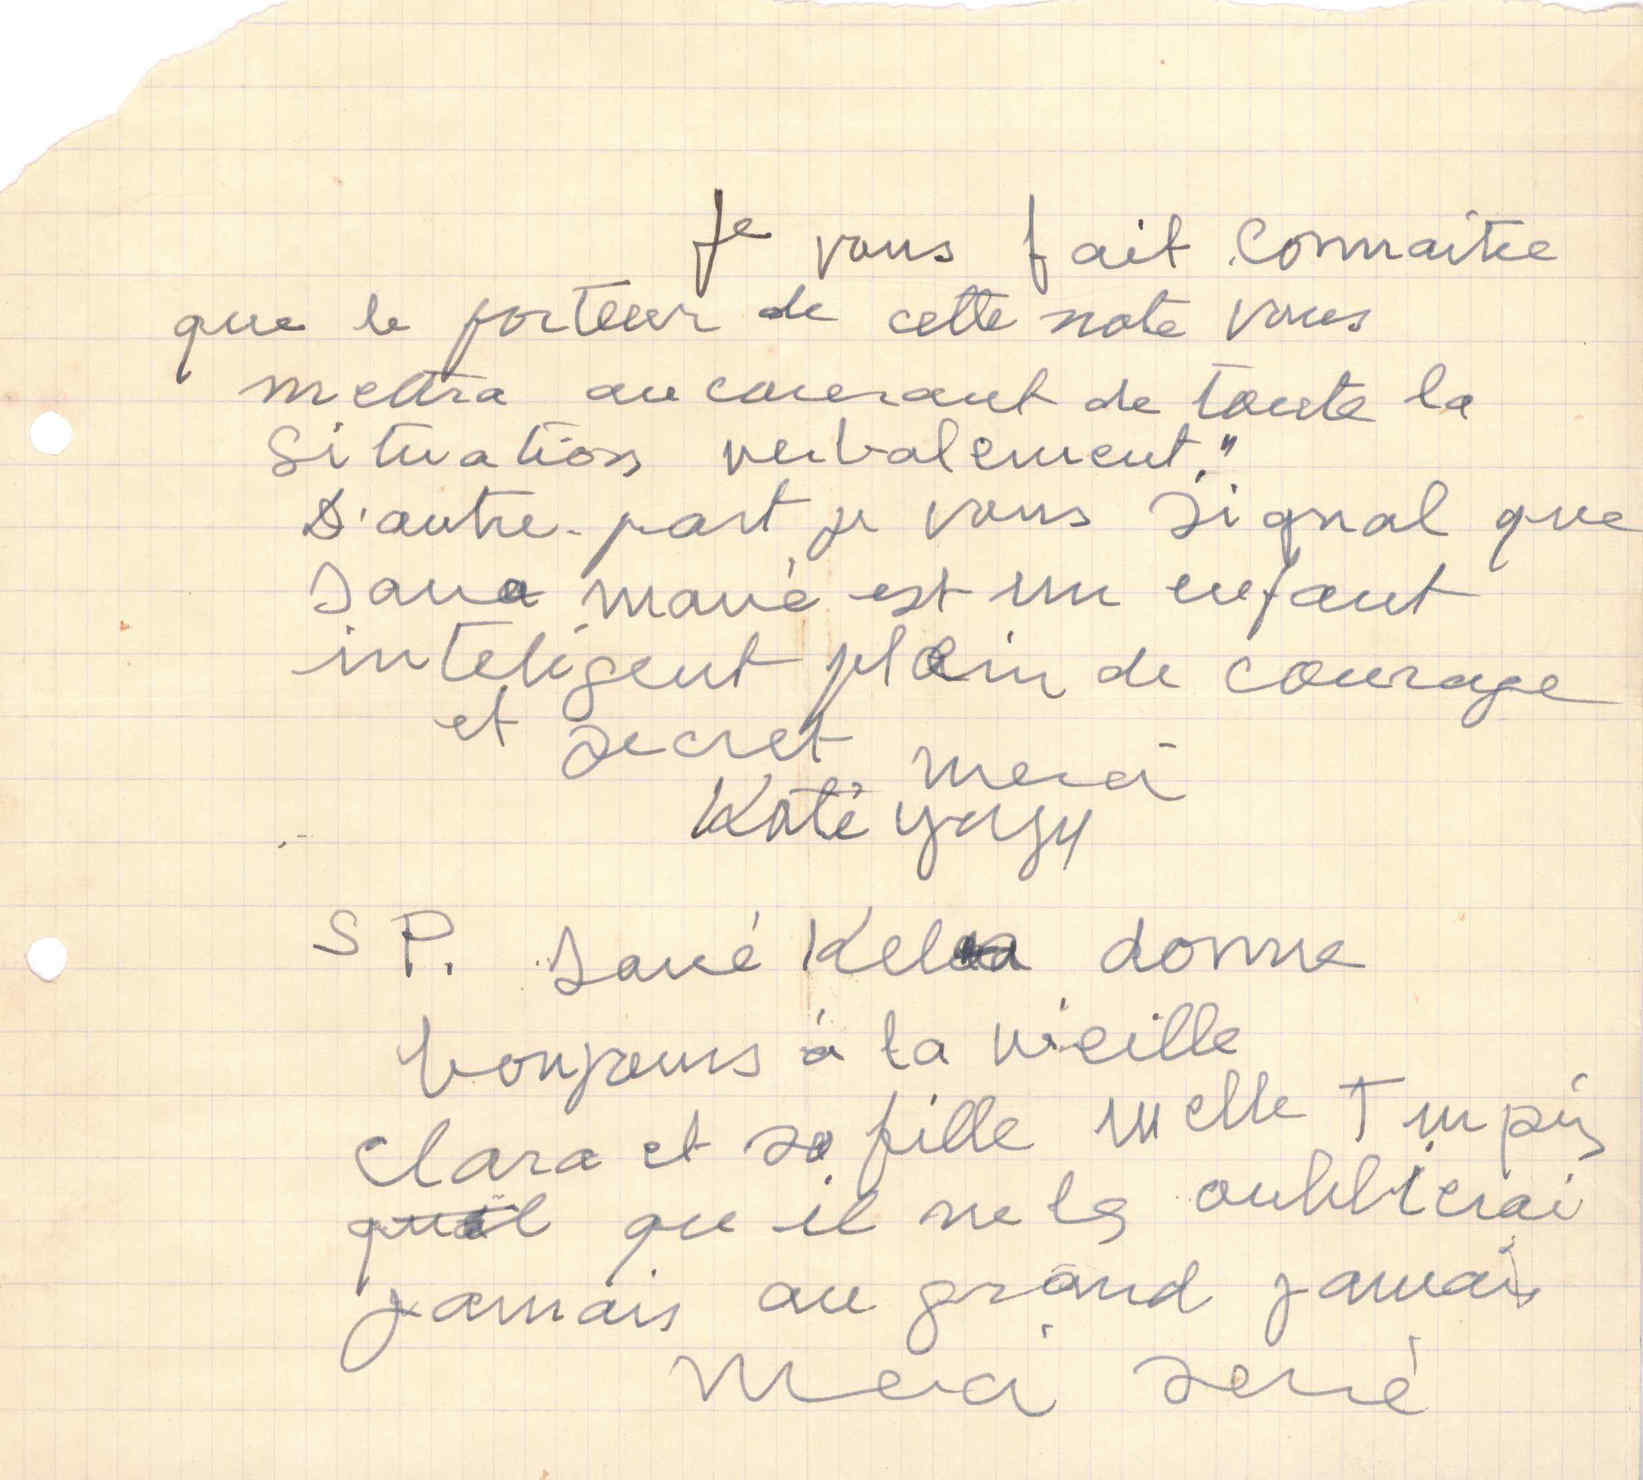 Je vous fait connaitre
que le porteur de cette note vous
mettra au courant de toute la
situation verbalement."
D'autre-part je vous signal que
sana mané est un enfant
inteligent plein de courage
et secret merci
Koté
SP. sané donne
bonjours à la vieille
clara et sa fille melle
qu il ne les oublierai
jamais au grand jamais
Merci sené